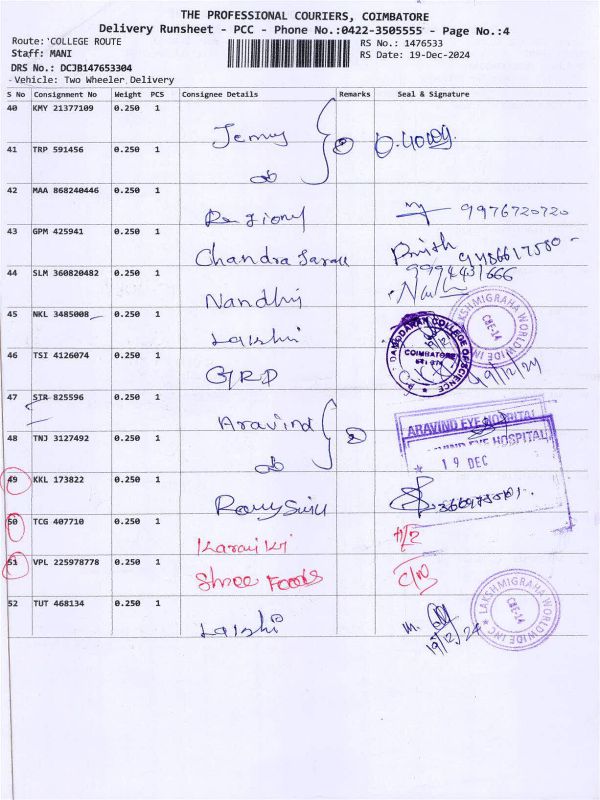 THE PROFESSIONAL COURIERS, COIMBATORE
Delivery Runsheet - PCC - Phone No.:0422-3505555 - Page No.:4
Route: 'COLLEGE ROUTE
RS No.: 1476533
Staff: MANI
RS Date: 19-Dec-2024
DRS No.: DCJB147653304
Vehicle: Two Wheeler Delivery
S No Consignment No Weight PCS Consignee Details Remarks Seal & Signature
40 KMY 21377109 0.250 1
Jenny
41 TRP 591456 0.250 1
do
42 MAA 868240446 0.250 1
9976720720
43 GPM 425941 0.250 1
Chandra
44 SLM 360820482 0.250 1
9994431666
Nandhi
45 NKL 3485008 0.250 1
Lakshi
LAKSHMIGRAHA WORLDWIDE INC
CBE-14
46 TSI 4126074 0.250 1
GRD
DAMODARAN COLLEGE OF SCIENCE
COIMBATORE
19/12/24
47 STR 825596 0.250 1
Aravind
ARAVIND EYE HOSPITAL
48 TNJ 3127492 0.250 1
do
EYE HOSPITAL
19 DEC
49 KKL 173822 0.250 1
50 TCG 407710 0.250 1
51 VPL 225978778 0.250 1
Shree Foods
52 TUT 468134 0.250 1
Lakshi
19/12/24
LAKSHMIGRAHA WORLDWIDE INC
CBE-14